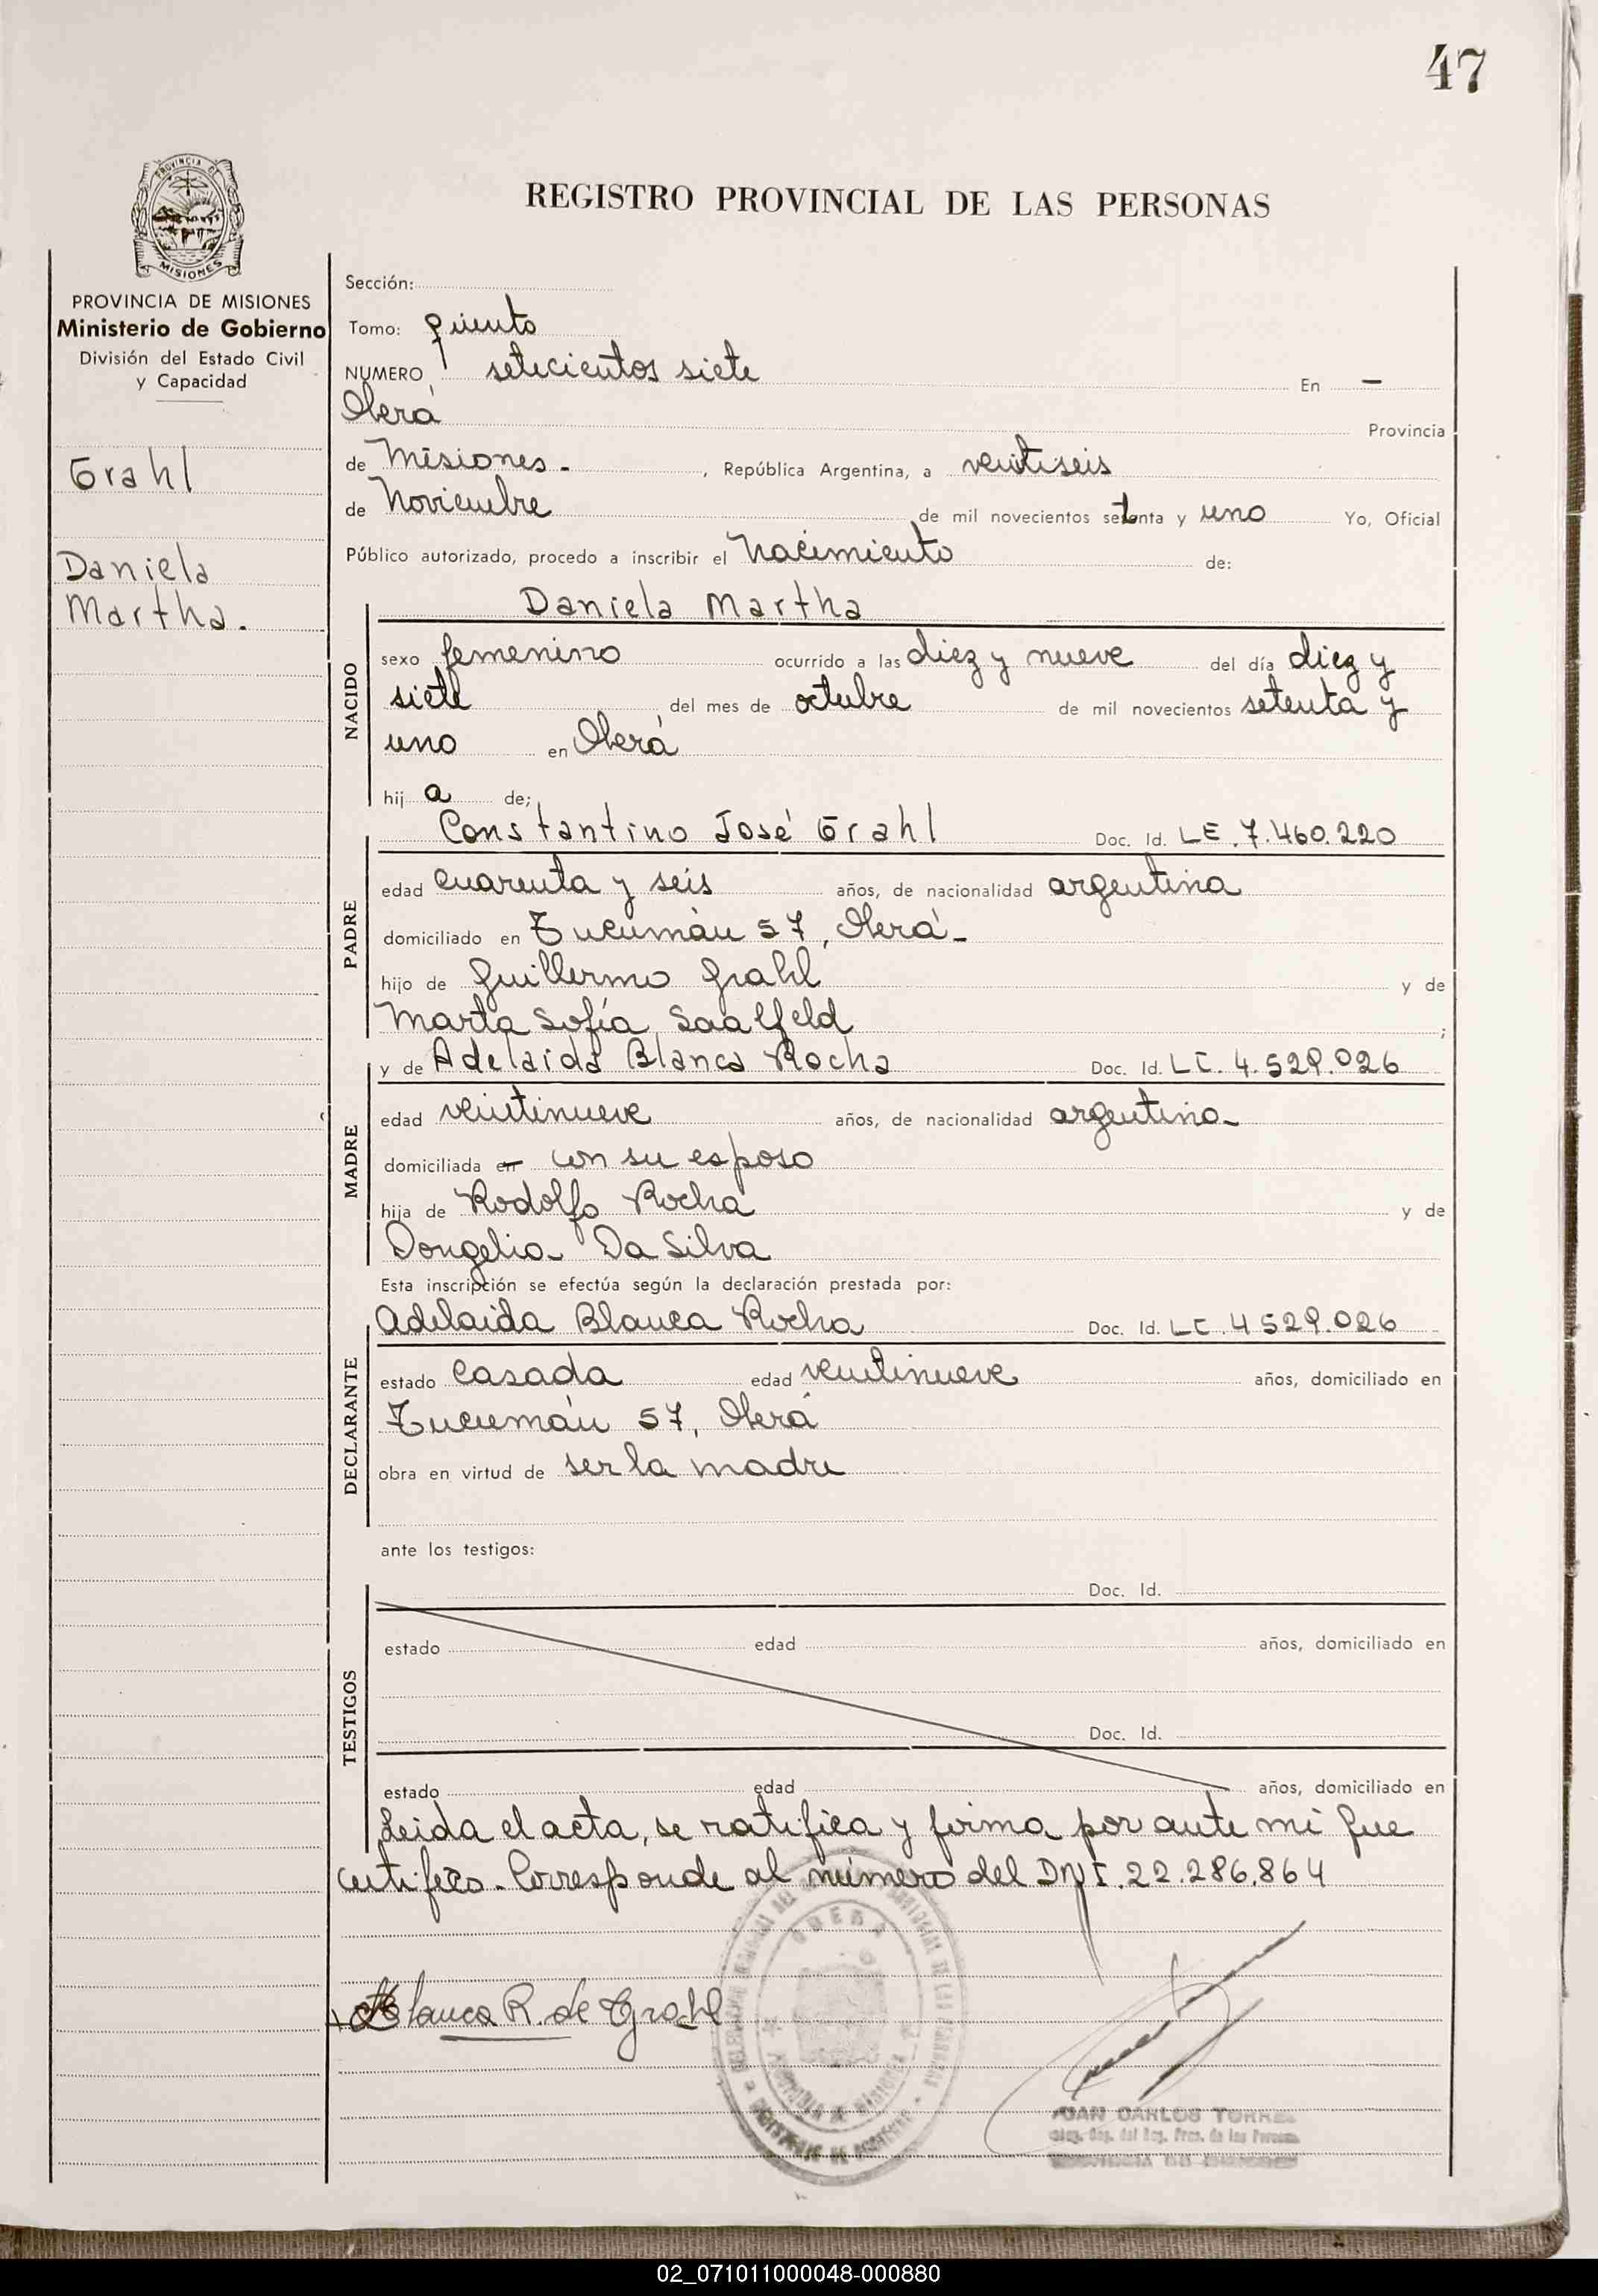 47
PROVINCIA DE
MISIONES
REGISTRO PROVINCIAL DE LAS PERSONAS
PROVINCIA DE MISIONES
Ministerio de Gobierno
División del Estado Civil
y Capacidad
Grahl
Daniela
Martha.
Sección:
Tomo: quinto
NUMERO setecientos siete En —
Oberá Provincia
de Misiones - , República Argentina, a veintiseis
de Noviembre de mil novecientos setenta y uno Yo, Oficial
Público autorizado, procedo a inscribir el Nacimiento de:
NACIDO
Daniela Martha
sexo femenino ocurrido a las diez y nueve del día diez y
siete del mes de octubre de mil novecientos setenta y
uno en Oberá
hij a de;
PADRE
Constantino José Grahl Doc. Id. LE. 7.460.220
edad cuarenta y seis años, de nacionalidad argentina
domiciliado en Tucumán 57, Oberá -
hijo de Guillermo Grahl y de
Marta Sofía Saalfeld ;
MADRE
y de Adelaida Blanca Rocha Doc. Id. LC. 4.529.026
edad veintinueve años, de nacionalidad argentina -
domiciliada en con su esposo
hija de Rodolfo Rocha y de
Dongelia Da Silva
Esta inscripción se efectúa según la declaración prestada por:
DECLARANTE
Adelaida Blanca Rocha Doc. Id. LC. 4529.026
estado casada edad veintinueve años, domiciliado en
Tucumán 57, Oberá
obra en virtud de ser la madre
ante los testigos:
TESTIGOS
Doc. Id.
estado edad años, domiciliado en
Doc. Id.
estado edad años, domiciliado en
Leida el acta, se ratifica y firma por ante mi que
certifico - Corresponde al número del DNI. 22.286.864
Blanca R. de Grahl
OBERA
JUAN CARLOS TORRES
02_071011000048-000880